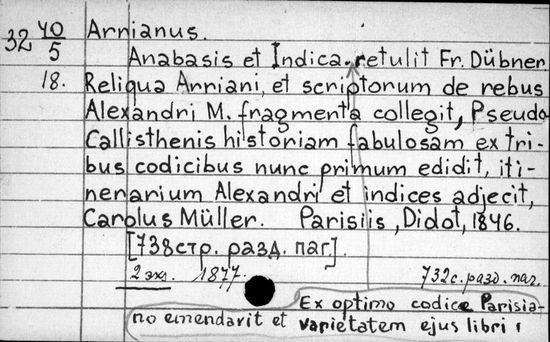 32 40/5 Arrianus.
Anabasis et Indica. retulit Fr. Dübner.
18. Reliqua Arriani, et scriptorum de rebus
Alexandri M. fragmenta collegit, Pseudo
Callisthenis historiam fabulosam ex tri-
bus codicibus nunc primum edidit, iti-
nenarium Alexandri et indices adjecit,
Carolus Müller. Parisiis, Didot, 1846.
[738стр. разд. паг].
2 экз. 1877. 732с. разд. паг.
Ex optimo codice Parisia-
no emendavit et varietatem ejus libri